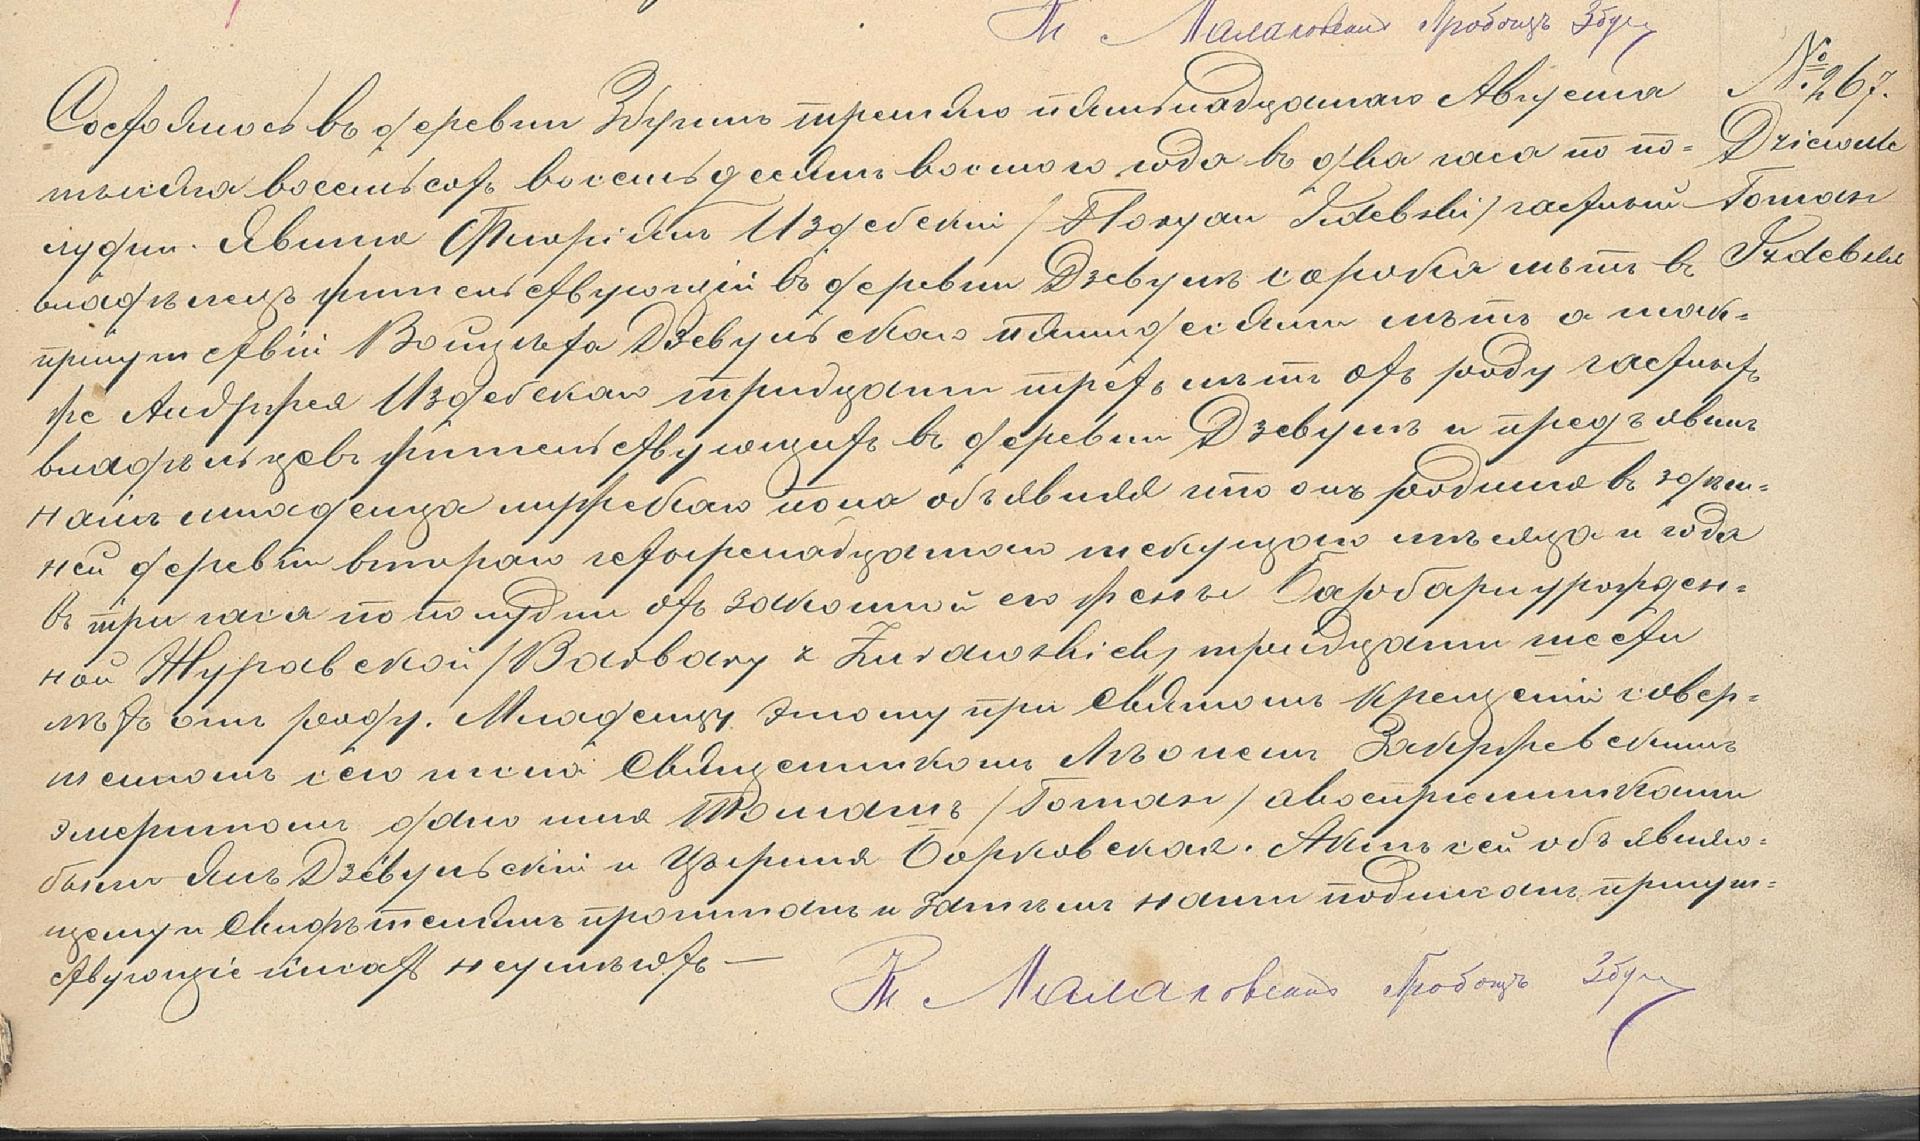 Малаховский Пробощъ Збуч
Состоялось въ деревни Збучинъ третяго пятьнадцатаго Августа
№ 267.
тысяча восемьсотъ восемьдесятъ восмого года въ два часа по по=
Dziewule
лудни. Явился Флоріянъ Издебскій /Floryan Izdebski/ частный
Tomasz
владѣлецъ жительствующій въ деревни Дзевулѣ сорока лѣтъ въ
Izdebski
присутствіи Войцѣха Дзевульскаго пятидесяти лѣтъ а так=
же Андржея Издебскаго тридцати трехъ лѣтъ отъ роду частныхъ
владѣльцевъ жительствующихъ въ деревни Дзевулѣ и предъявилъ
намъ младенца мужескаго пола объявляя что онъ родился въ здѣш=
ней деревни втораго четыренадцатаго текущаго мѣсяца и года
въ три часа по полудни отъ законной его жены Барбары урожден=
ной Журавской /Barbary z Żurawskich/ тридцати шести
лѣтъ отъ роду. Младенцу этому при Святомъ Крещеніи совер=
шенномъ сего числа Священникомъ Закржевскимъ
эмеритомъ дано имя Томашъ /Tomasz/ а воспріемниками
были Янъ Дзевульскій и Борковская. Актъ сей объявляю=
щему и Свидѣтелямъ прочитанъ и затѣмъ нами подписанъ присут=
ствующіе писать неумѣютъ —
Малаховский Пробощъ Збуч